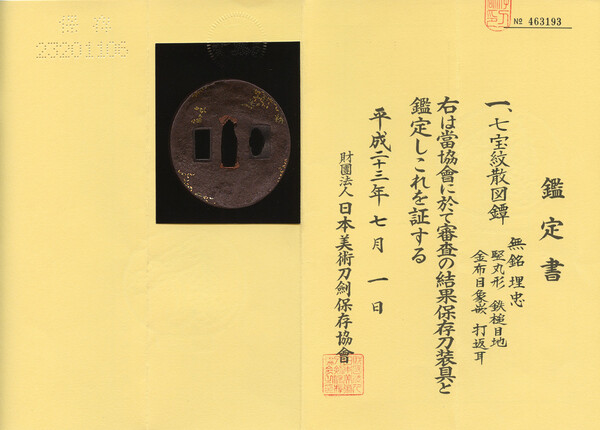 № 463193
鑑定書
一、七宝紋散図鐔
無銘 埋忠
竪丸形 鉄槌目地
金布目象嵌 打返耳
右は當協會に於て審査の結果保存刀装具と
鑑定しこれを証する
平成二十三年七月一日
財團法人 日本美術刀劍保存協會
保存
23201106